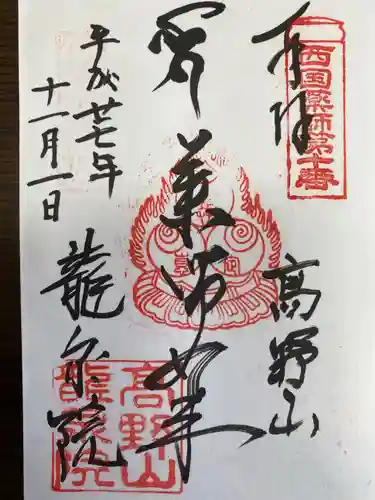 奉拝
高野山
西国薬師第十番
薬師如来
平成廿七年
十一月一日
龍泉院
高野山
龍泉院